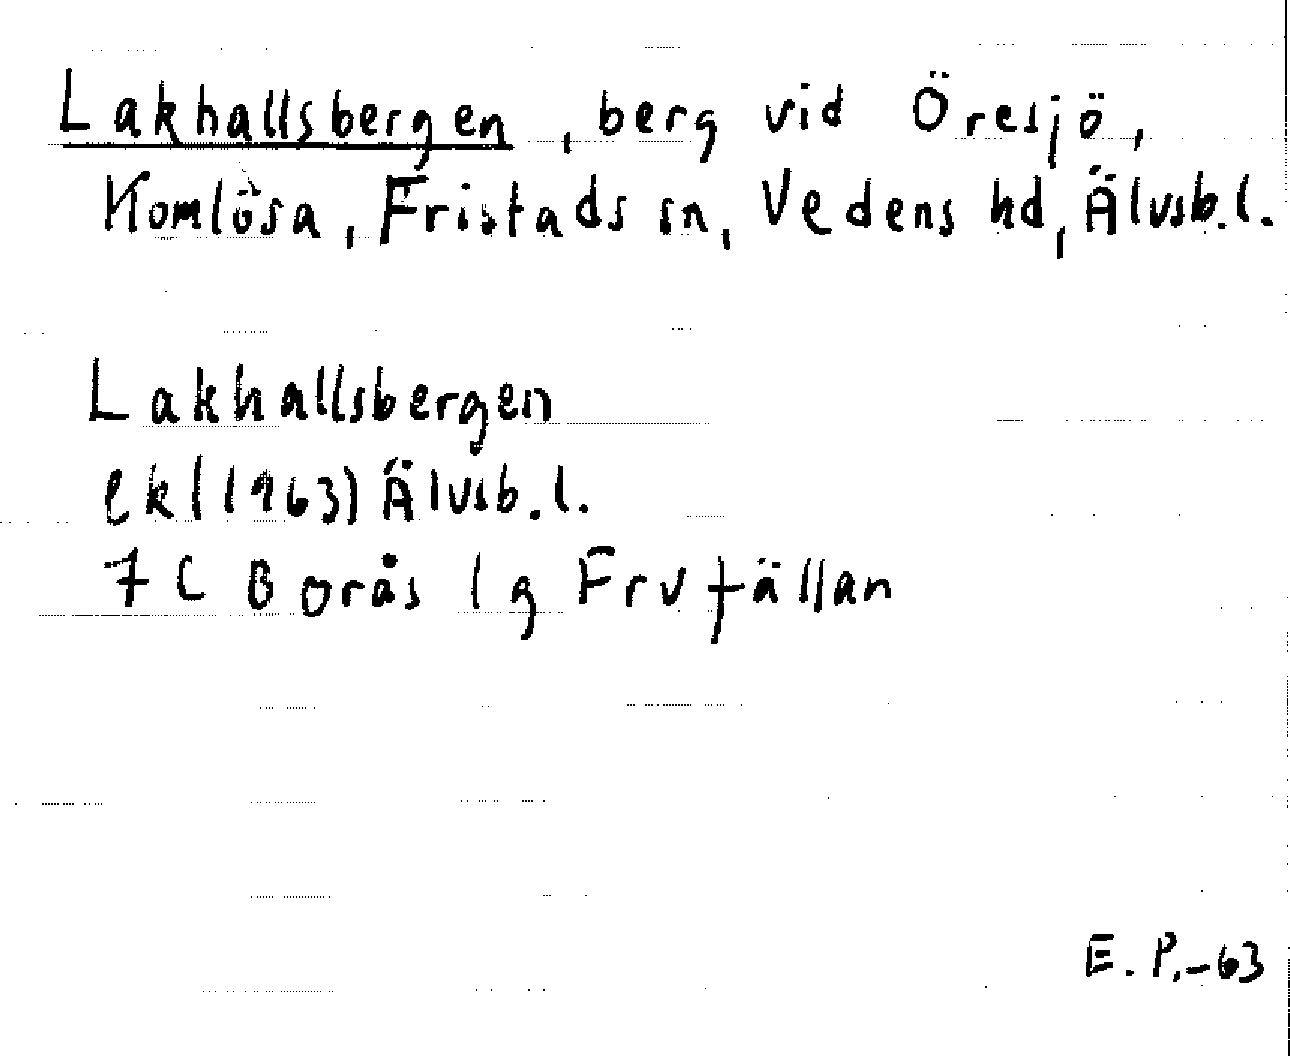 Lakhallsbergen, berg vid Öresjö,
Komlösa, Fristads sn, Vedens hd, Älvsb.l.
Lakhallsbergen
ek(1963) Älvsb.l.
7 C Borås 1 g Frufällan
E. P.-63